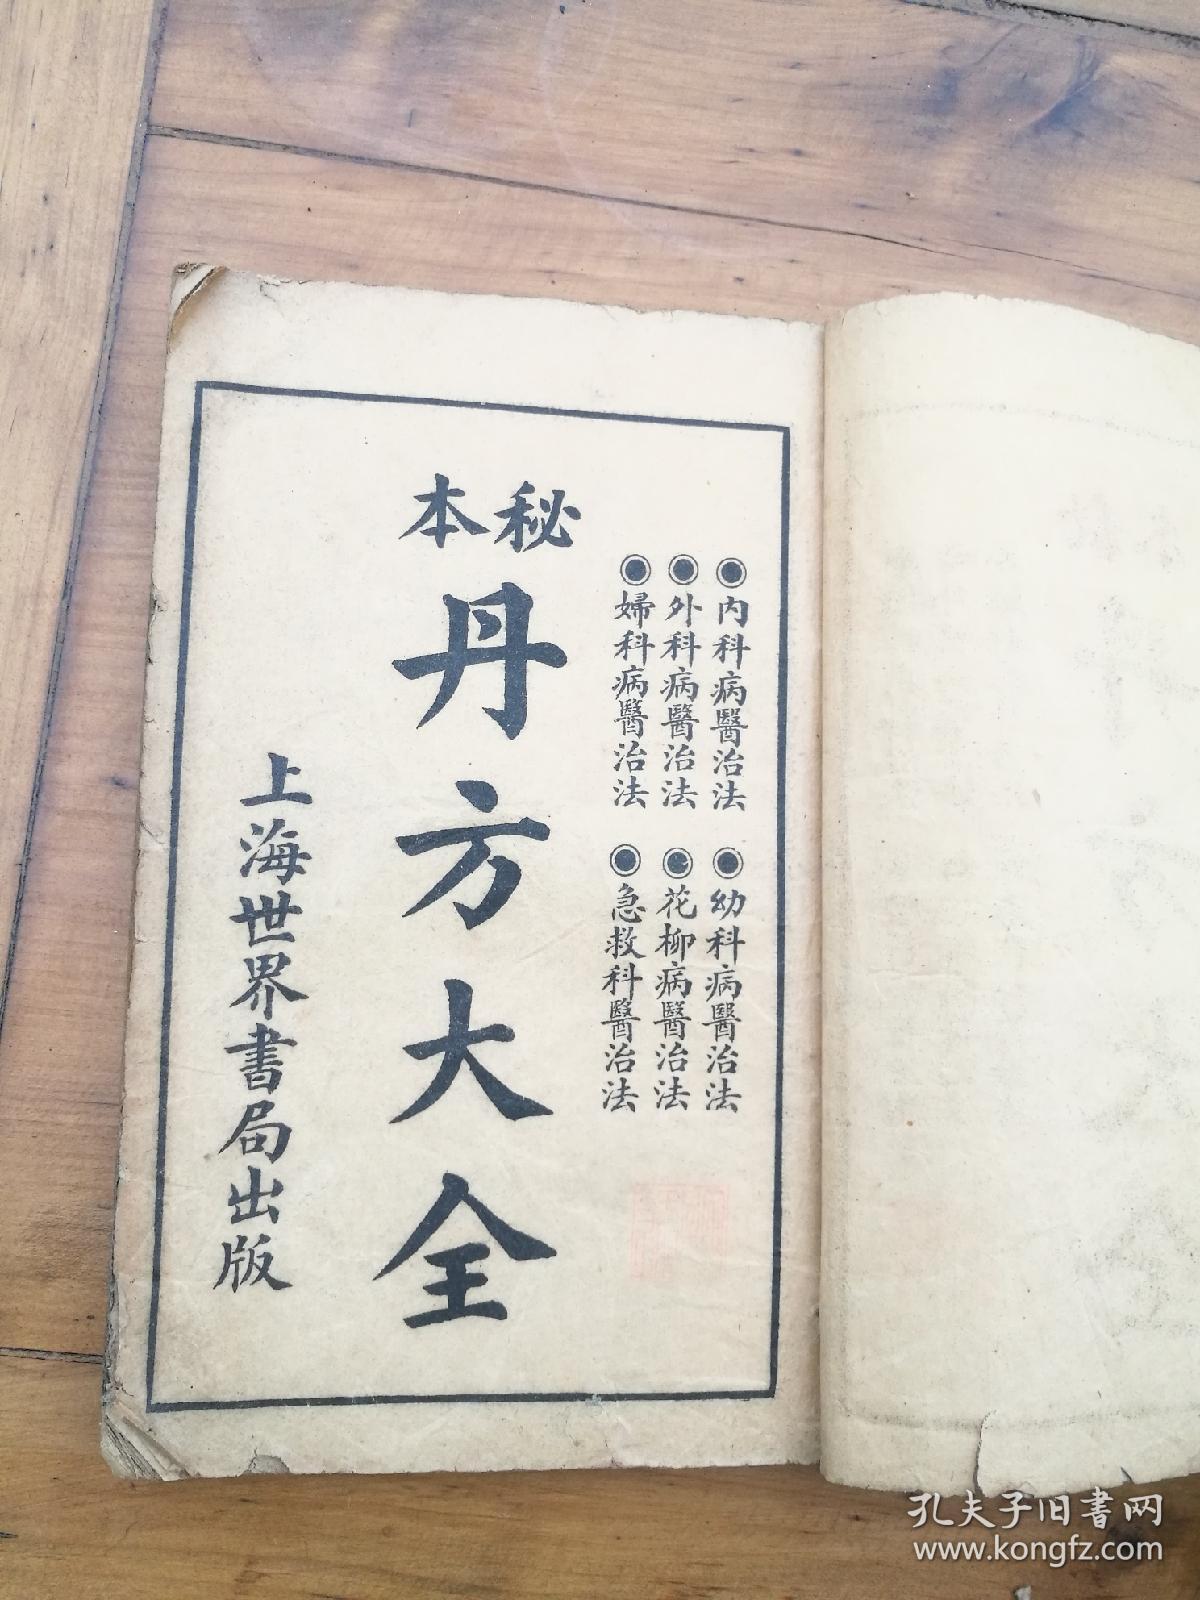 ◉內科病醫治法 ◉幼科病醫治法
◉外科病醫治法 ◉花柳病醫治法
◉婦科病醫治法 ◉急救科醫治法
秘本
丹方大全
上海世界書局出版
孔夫子旧书网
www.kongfz.com